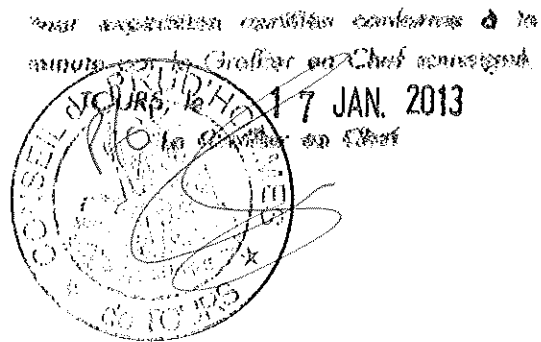 Pour expédition certifiée conforme à la
minute par le Greffier en Chef soussigné.
TOURS, le 17 JAN. 2013
Le Greffier en Chef
CONSEIL de PRUD'HOMMES
TOURS